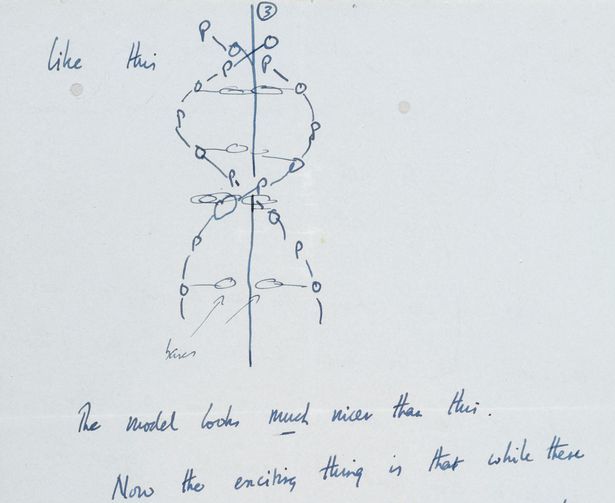 ③
P
P P
Like this
P P
P P
P P
bases
The model looks much nicer than this.
Now the exciting thing is that while these